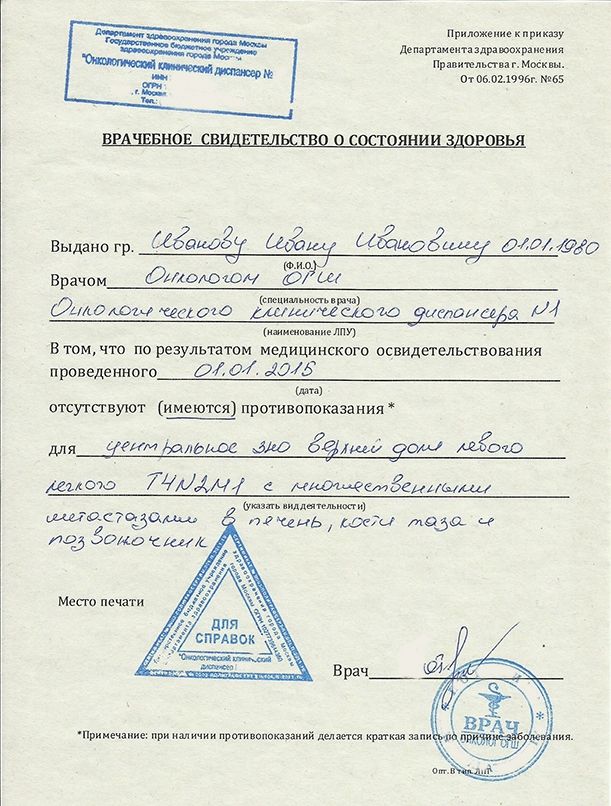 Департамент здравоохранения города Москвы
Государственное бюджетное учреждение
здравоохранения города
"Онкологический клинический диспансер №
ИНН
ОГРН
, г. Москва
Тел.:
Приложение к приказу
Департамента здравоохранения
Правительства г. Москвы.
От 06.02.1996г. №65
ВРАЧЕБНОЕ СВИДЕТЕЛЬСТВО О СОСТОЯНИИ ЗДОРОВЬЯ
Выдано гр. Иванову Ивану Ивановичу 01.01.1980
(Ф.И.О.)
Врачом Онкологом ОГШ
(специальность врача)
Онкологического клинического диспансера №1
(наименование ЛПУ)
В том, что по результатом медицинского освидетельствования
проведенного 01.01.2015
(дата)
отсутствуют (имеются) противопоказания *
для центральное зно верхней доли левого
легкого T4N2M1 с множественными
(указать вид деятельности)
метастазами в печень, кости таза и
позвоночник
Место печати
ДЛЯ
СПРАВОК
"Онкологический клинический
диспансер
Врач
ВРАЧ
ОНКОЛОГ ОГШ
*Примечание: при наличии противопоказаний делается краткая запись по причине заболевания.
Опт. В тип. ЛПП